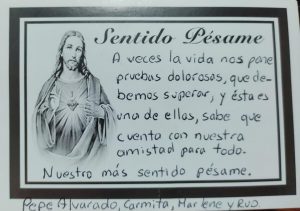 Sentido Pésame
A veces la vida nos pone
pruebas dolorosas, que de-
bemos superar, y ésta es
una de ellas, sabe que
cuenta con nuestra
amistad para todo.
Nuestro más sentido pésame.
Pepe Alvarado, Carmita, Marlene y Rvo.